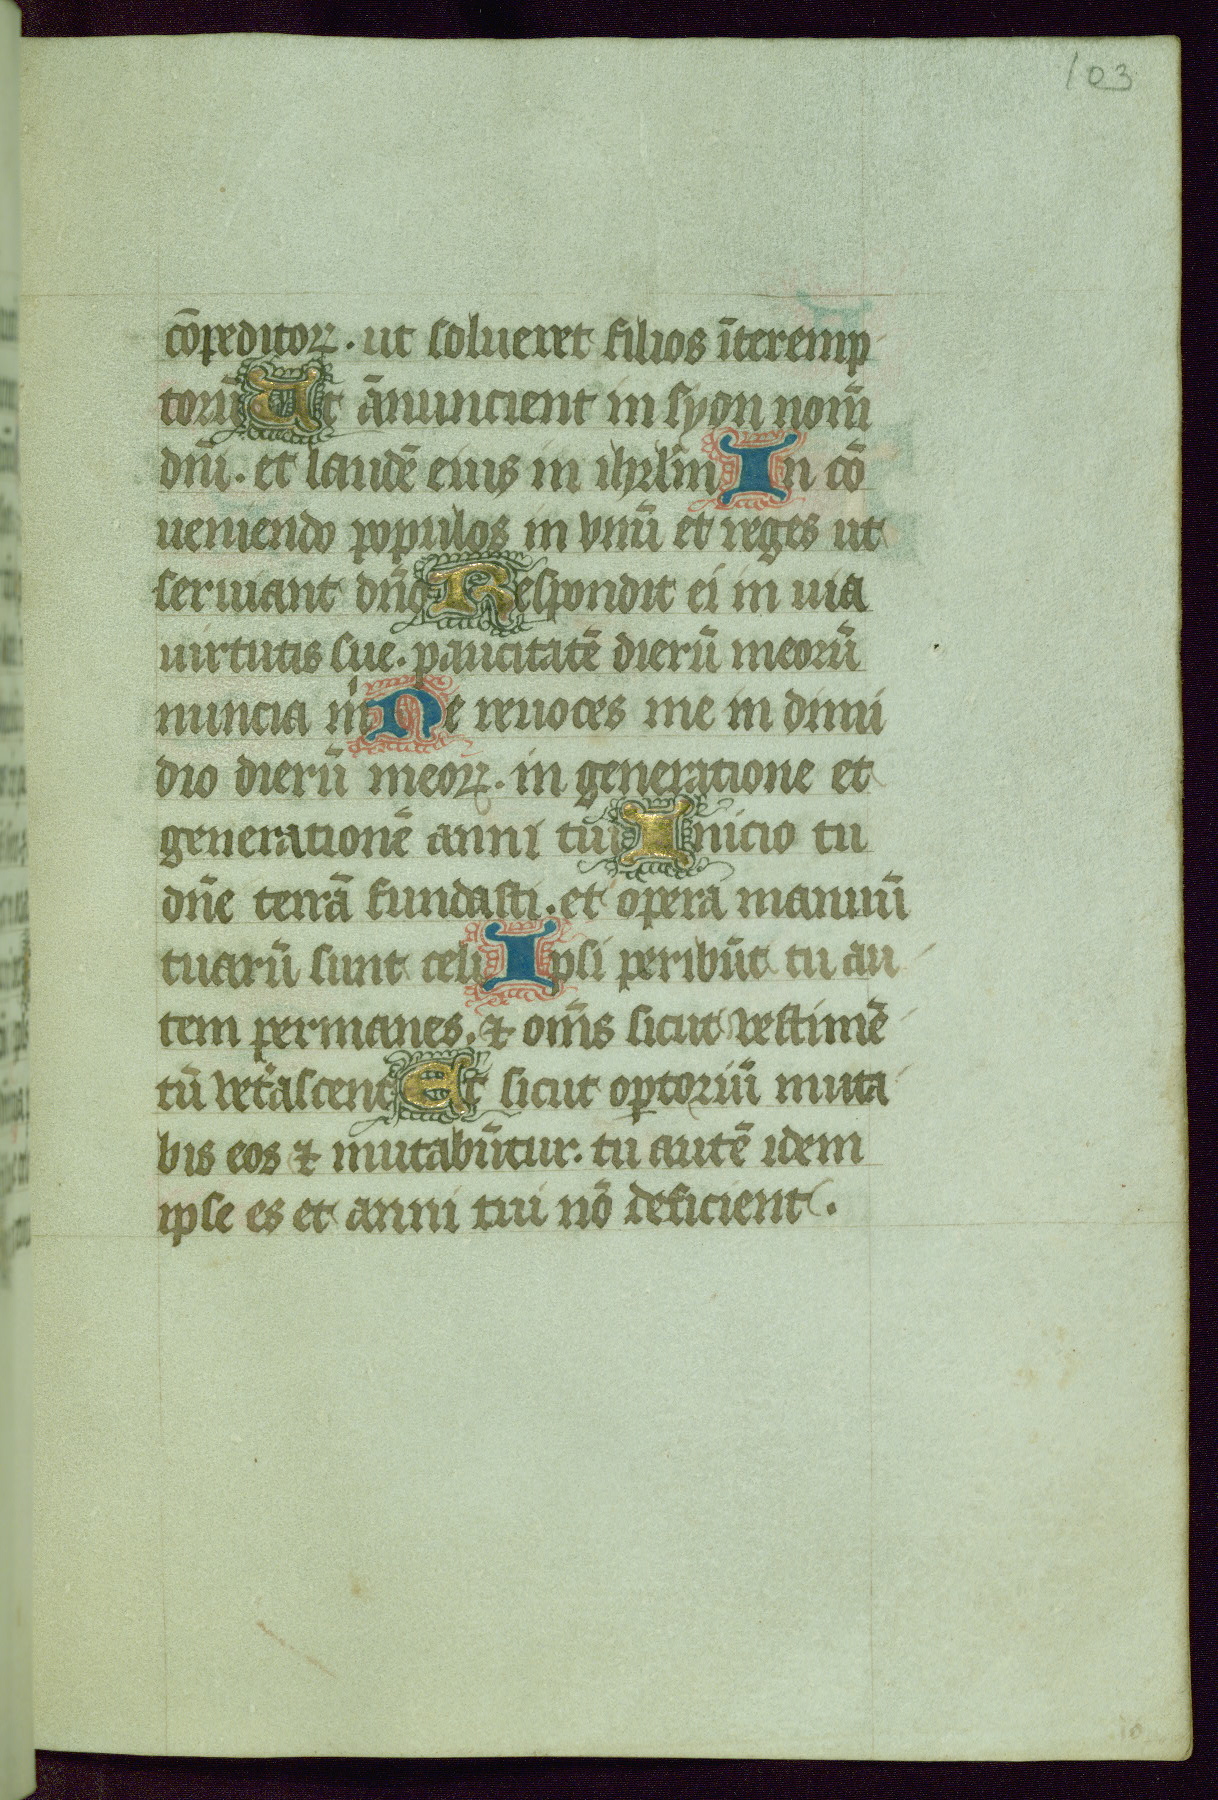 103
cōpeditoꝝ. ut solueret filios īteremp
torū Ut ānuncient in syon nom̄
dn̄i. et laudē eius in ihrl̄m In cō
ueniendo populos in vnū et reges ut
seruiant dn̄o Respondit ei in uia
uirtutis sue. paucitatē dierū meorū
nuncia m̄ Ne reuoces me in dimi
dio dierū meoꝝ. in generatione et
generationē anni tui Inicio tu
dn̄e terrā fundasti. et opera manuū
tuarū sunt celi Ipsi peribūt tu au
tem permanes. ⁊ om̄s sicut vestimē
tū vet͛ascent Et sicut optoriū muta
bis eos ⁊ mutabūtur. tu autē idem
ipse es et anni tui nō deficient.